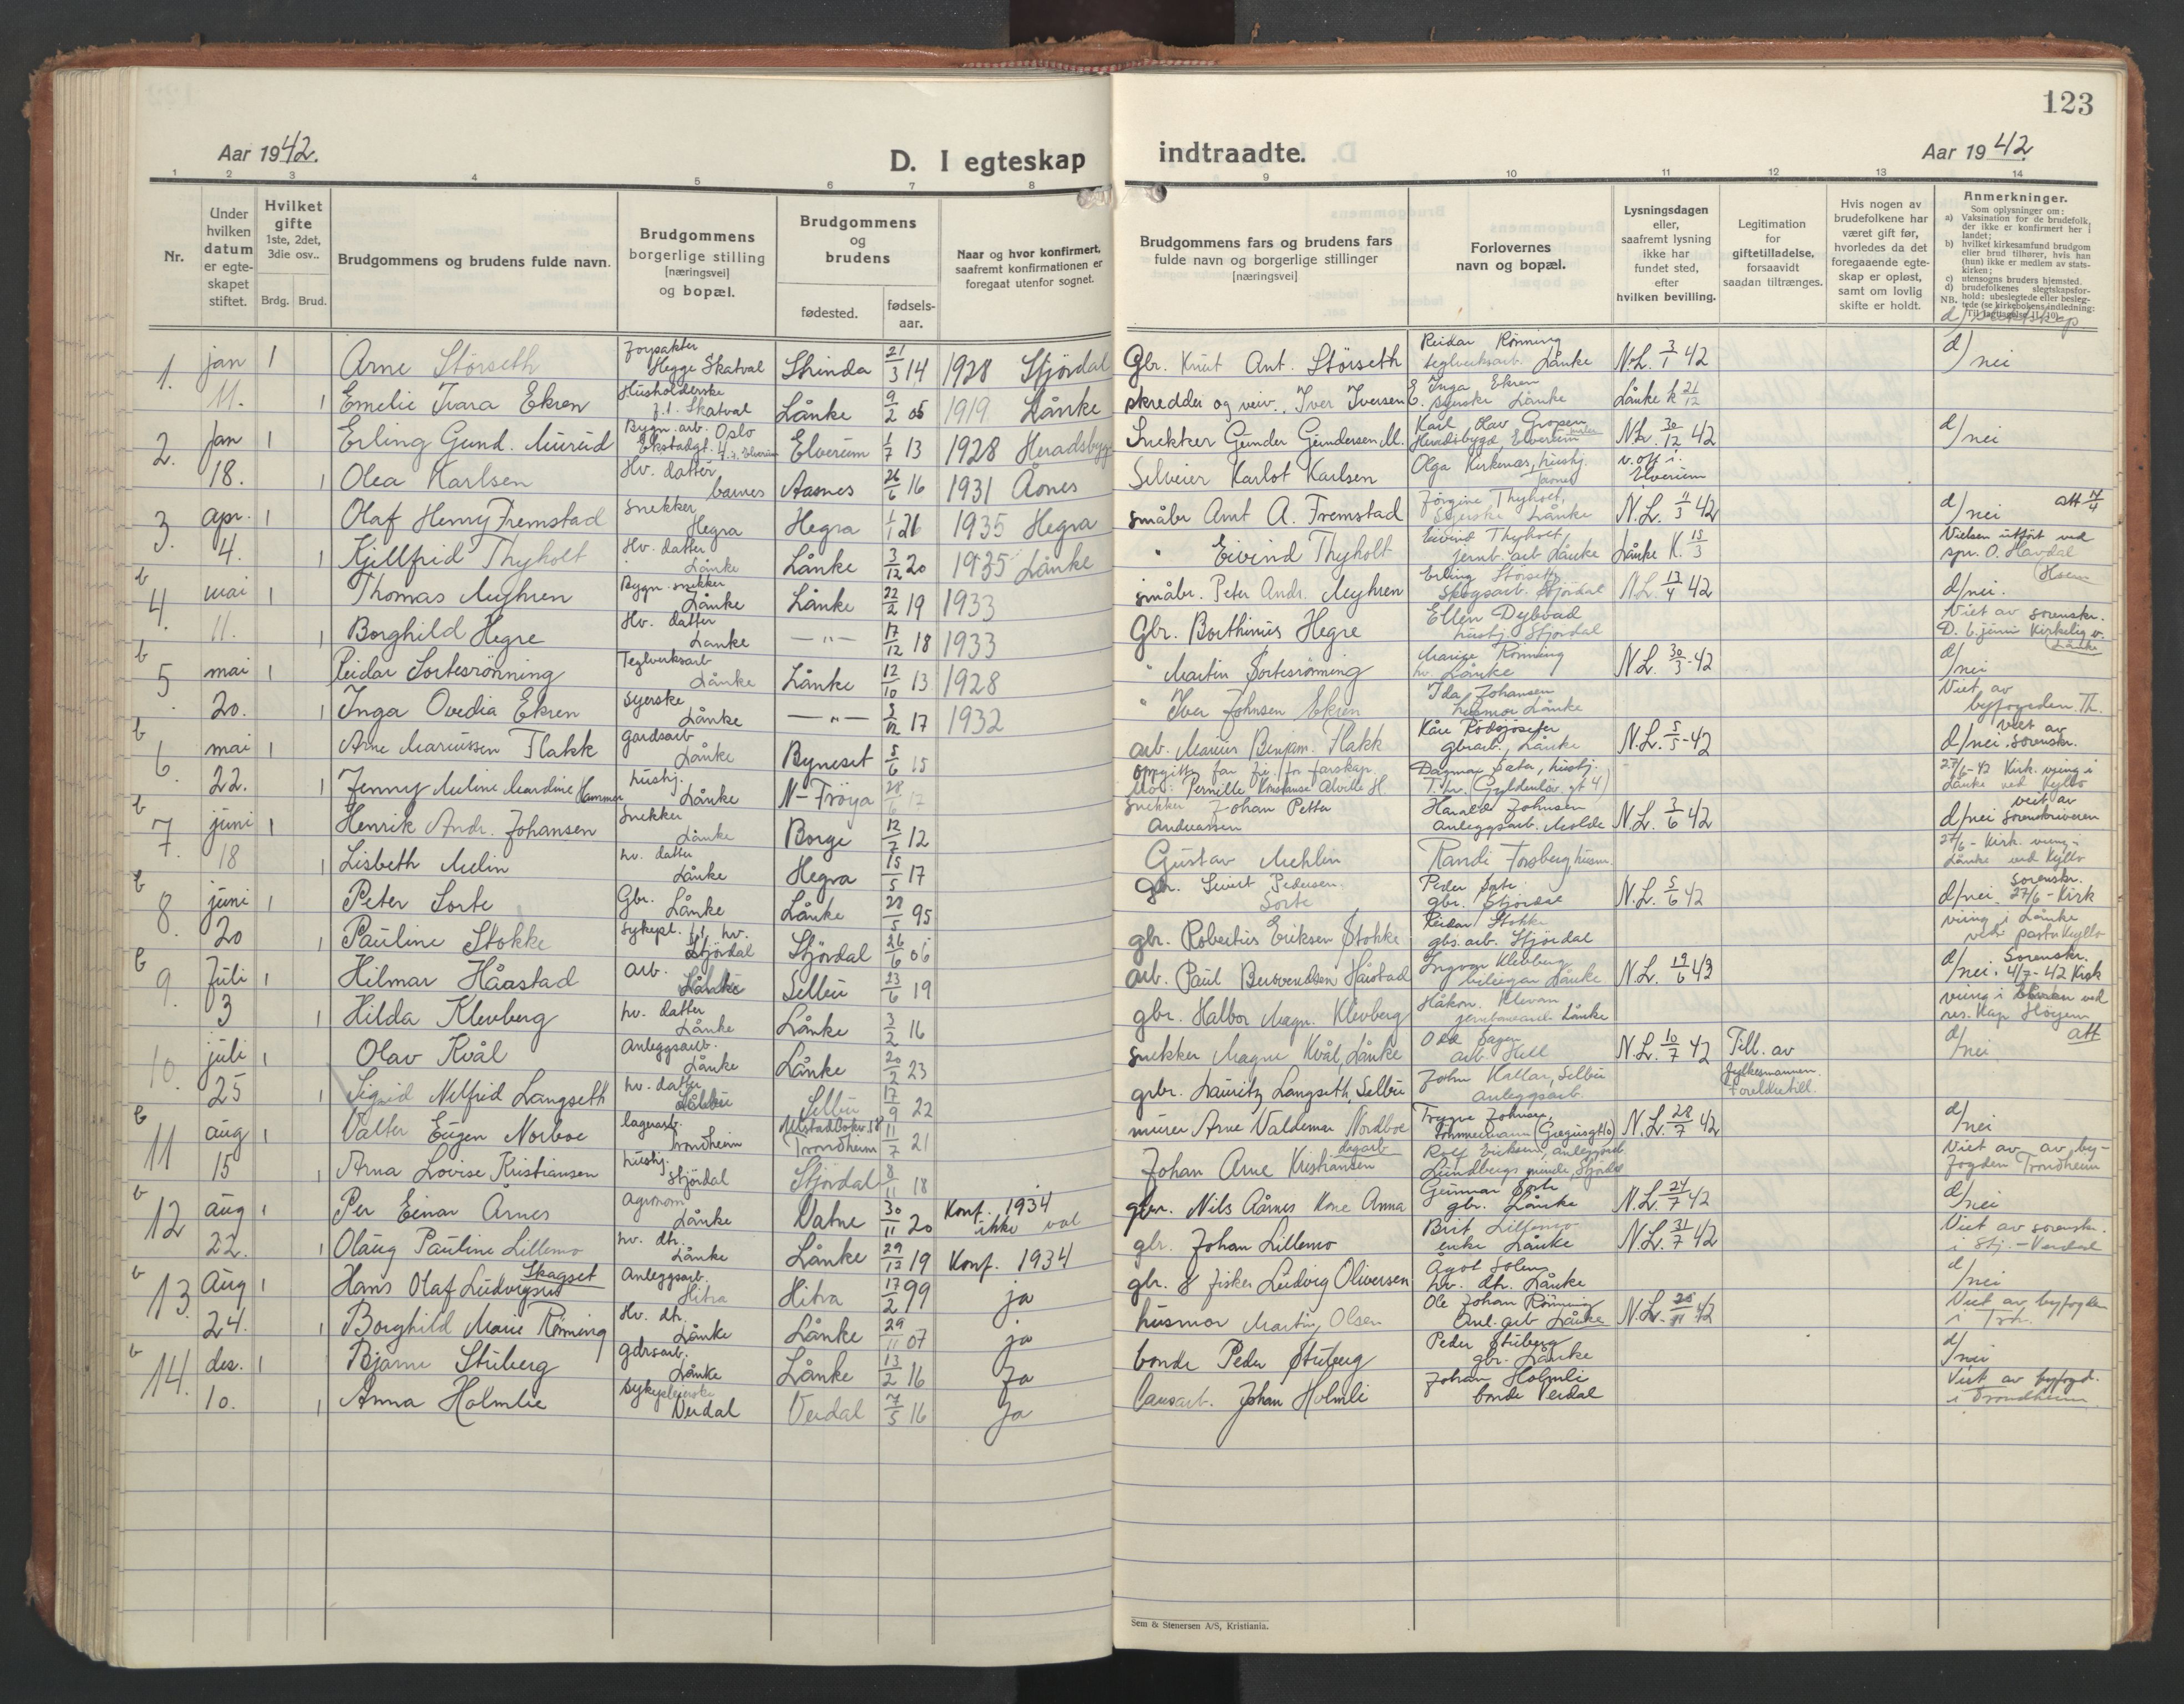 123
Aar 1942.
D. I egteskap
indtraadte.
Aar 1942
1 2 3 4 5 6 7 8 9 10 11 12 13 14
Nr.
Under hvilken datum er egteskapet stiftet.
Hvilket gifte 1ste, 2det, 3die osv..
Brdg. Brud.
Brudgommens og brudens fulde navn.
Brudgommens borgerlige stilling [næringsvei] og bopæl.
Brudgommens og brudens
fødested.
fødsels-aar.
Naar og hvor konfirmert, saafremt konfirmationen er foregaat utenfor sognet.
Brudgommens fars og brudens fars fulde navn og borgerlige stillinger [næringsvei]
Forlovernes navn og bopæl.
Lysningsdagen eller, saafremt lysning ikke har fundet sted, efter hvilken bevilling.
Legitimation for giftetilladelse, forsaavidt saadan tiltrænges.
Hvis nogen av brudefolkene har været gift før, hvorledes da det foregaaende egteskap er opløst, samt om lovlig skifte er holdt.
Anmerkninger.
Som oplysninger om:
a) Vaksination for de brudefolk, der ikke er konfirmert her i landet;
b) hvilket kirkesamfund brudgom eller brud tilhører, hvis han (hun) ikke er medlem av statskirken;
c) utensogns bruders hjemsted.
d) brudefolkenes slegtskapsforhold: ubeslegtede eller beslegtede (se kirkebokens indledning:
1. jan 1 Arne Störseth Hegge Skatval Strinda 21/3 14 1928 Stjördal Gbr. Knut Ant. Störseth Reidar Rönning teglverksarb. Lånke N.L. 3/1 42 d/nei
11. 1 Emelie Ivara Ekren Husholderske f.t. Skatval Lånke 9/2 05 1919 Lånke skredder og veiv. Iver Iversen E. Inga Ekren syerske Lånke Lånke k 21/12
2. Jan 1 Erling Gund. Murud Bygn. arb. Oslo Elverum 1/7 13 1928 Heradsbygd Snekker Gunder Gundersen M. Karl Olav Gropen Heradsbygd, Elverum N.L. 30/12 42 d/nei
18. 1 Olea Karlsen Hv. datter Aasnes 26/6 16 1931 Åsnes Karlot Karlsen Olga Kirkenær, hustj. v. off. i Elverum
3. apr. 1 Olaf Henry Fremstad Snekker Hegra Hegra 1/1 21 1935 Hegra småbr Arnt A. Fremstad Jörgine Thyholt, Syerske Lånke N.L. 11/3 42 d/nei att 14/4
4. 1 Kjellfrid Thyholt Hv. datter Lånke Lånke 3/12 20 1935 Lånke " Eivind Thyholt Eivind Thyholt, jernb. arb Lånke Lånke K. 15/3 Vielsen utfört ved spr. O. Havdal
b 4. mai 1 Thomas Myhren Bygn. snekker Lånke Lånke 22/2 19 1933 småbr. Peter Andr. Myhren Erling Störseth skogsarb. Stjördal N.L. 17/4 42 d/nei.
11. 1 Borghild Hegre Hv. datter Lånke —"— 17/12 18 1933 Gbr. Borthinus Hegre Ellen Dybvad hustj. Stjördal Viet av sorenskr. D. 6. juni Kirkelig v. Lånke
b 5. mai 1 Reidar Sortesrönning Teglverksarb Lånke Lånke 12/10 13 1928 " Martin Sortesrönning Marie Rönning hv. Lånke N.L. 30/3 - 42 d/nei
20. 1 Inga Ovedia Ekren syerske Lånke —"— 3/12 17 1932 " Iver Johnsen Ekren Ida Johansen husmor Lånke Viet av byfogden Th.
b 6. mai 1 Arne Mariussen Flakk gardsarb Lånke Byneset 5/6 15 arb. Marius Benjam. Flakk Kåre gbrarb., Lånke N.L. 5/5 - 42 d/nei. viet av sorenskr.
22. 1 Jenny Meline Mardine Hammer hustj. Lånke N-Fröya 28/6 17 Mor: Pernille Konstanse Alvilde H Dagmar Sæter, hustj. T.hv. (Gyldenlöv. gt 4) 27/6-42 Kirk. vying i Lånke ved Kjillo
b 7. juni 1 Henrik Andr. Johansen Snekker Lånke Borge 12/7 12 Snekker Johan Petter Andreassen Harald Johnsen anleggsarb. Molde N.L. 3/6 42 d/nei viet av sorenskriveren
18 1 Lisbeth Melin hv. datter Lånke Hegra 15/5 17 Gustav Mehlin Randi Forsberg, husm. 27/6 - Kirk. vying i Lånke ved Kyllo
b 8. juni 1 Peter Sorte Gbr. Lånke Lånke 28/5 95 gbr. Sivert Pedersen Sorte Peder Sorte gbr. Stjördal N.L. 5/6 42 d/nei. Sorenskr. 27/6 - Kirk
20 1 Pauline Stokke sykepl. Stjördal Stjördal 26/6 06 gbr. Robertus Eriksen Stokke Reidar Stokke gbs. arb. Stjördal vying i Lånke ved pastor Kyllo
b 9. Juli 1 Hilmar Håastad arb. Lånke Selbu 23/6 19 arb. Paul Håastad Ingvar Klevberg Lånke N.L. 19/6 43 d/nei. Sorenskr. 4/7 - 42 Kirk
3 1 Hilda Klevberg hv. datter Lånke Lånke 3/2 16 gbr. Halvor Magn. Klevberg Håkon Klevan Lånke vying i ved res. Kap Höyem
10. juli 1 Olav Kvål Anleggsarb. Lånke Lånke 20/2 23 snekker Magne Kvål, Lånke arb. Hell N.L. 10/7 42 Till. av d/nei att
25 1 Sigrid Nelfrid Langseth hv. datter Selbu 17/9 22 grbr. Lauritz Langseth, Selbu John Kallar, Selbu anleggsarb. fylkesmannen. Foreldretill.
b 11 aug 1 Valter Eugen Norboe lagerarb. Trondheim Trondheim 11/7 21 murer Arne Valdemar Nordboe Trygve Johnsen, N.L. 28/7 42 d/nei
15 1 Arna Lovise Kristiansen hustj. Stjördal Stjördal 8/11 18 Johan Arne Kristiansen Rolf Eriksen, anleggsarb. Lundbergs minde, Stjördal Viet av av byfogden Trondheim
b 12 aug 1 Per Einar Årnes Agronom Lånke Vatne 30/11 20 Konf. 1934 gbr. Nils Aårnes Kone Anna Gunnar Sorte gbr. Lånke N.L. 24/7 42 d/nei
22. 1 Olaug Pauline Lillemo hv. dtr. Lånke Lånke 29/12 19 Konf. 1934 glr. Johan Lillemo Brit Lillemo enke Lånke N.L. 31/7 42 Viet av sorenskr. i Stj. - Verdal
b 13. Aug 1 Hans Olaf Ludvigsen Skagset Anleggsarb. Hitra Hitra 17/2 99 ja gbr. & fisker Ludvig Oliversen Ågot Solem hv. dtr. Lånke d/nei
24. 1 Borghild Marie Rönning Hv. dtr. Lånke Lånke 29/11 07 ja husmor Martin Olsen Ole Johan Rönning Anl. arb Lånke N.L. Viet av byfogden i Trh.
b 14. des. 1 Bjarne Stuberg gdrsarb. Lånke Lånke 13/2 16 Ja bonde Peder Stuberg Peder Stuberg gbr. Lånke d/nei
10. 1 Anna Holmlie Sykepleierske Verdal Verdal 7/5 16 Ja Johan Holmli Johan Holmli bonde Verdal Viet av byfogd. i Trondheim
Sem & Stenersen A/S, Kristiania.